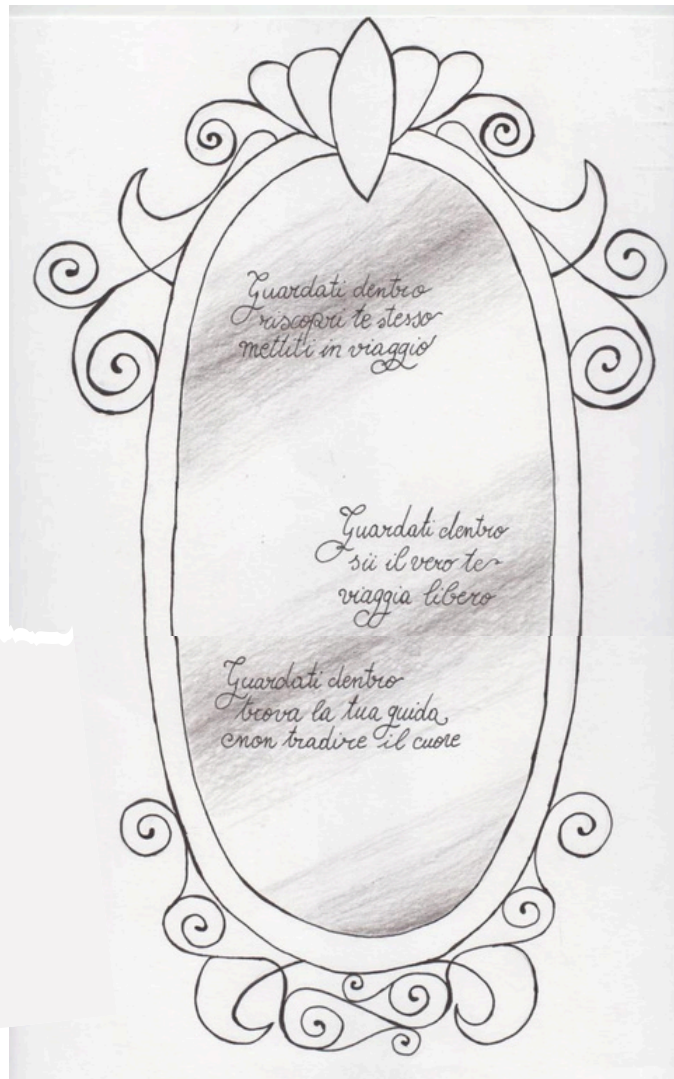 Guardati dentro
riscopri te stesso
mettiti in viaggio
Guardati dentro
sii il vero te
viaggia libero
Guardati dentro
trova la tua guida
non tradire il cuore